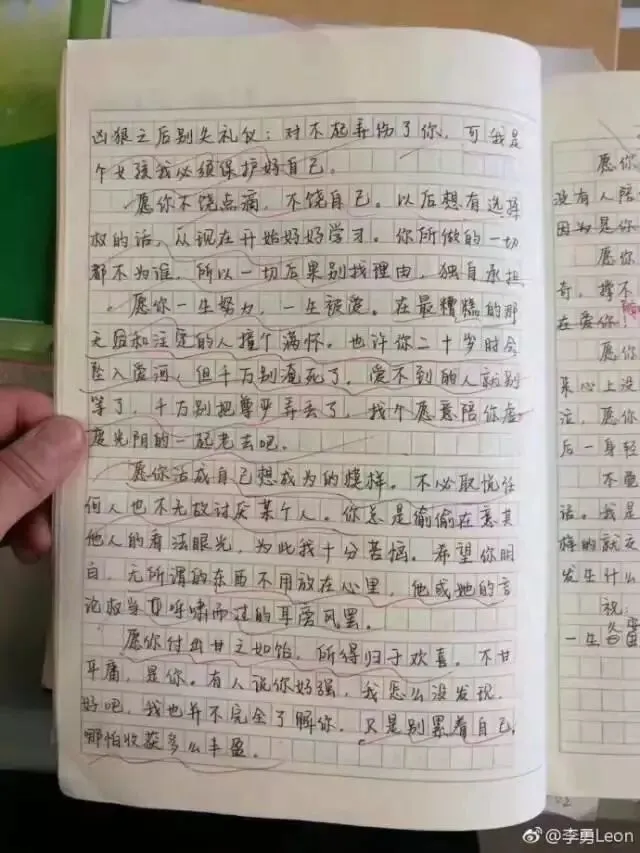 凶狠之后别失礼仪：对不起弄伤了你，可我是
个女孩我必须保护好自己。
愿你不饶点滴，不饶自己。以后想有选择
权的话，从现在开始好好学习。你所做的一切
都不为谁，所以一切后果别找理由，独自承担。
愿你一生努力，一生被爱。在最糟糕的那
天里和注定的人撞个满怀。也许你二十岁时会
坠入爱河，但千万别淹死了，爱不到的人就别
等了，千万别把尊严弄丢了，找个愿意陪你虚
度光阴的一起老去吧。
愿你活成自己想成为的模样。不必取悦任
何人也不无故讨厌某个人。你总是偷偷在意其
他人的看法眼光，为此我十分苦恼。希望你明
白，无所谓的东西不用放在心里，他或她的言
论权当呼啸而过的耳旁风罢。
愿你付出甘之如饴，所得归于欢喜。不甘
平庸，是你。有人说你好强，我怎么没发现，
好吧，我也并不完全了解你，只是别累着自己，
哪怕收获多么丰盈。
愿你
没有人陪
因为是你
愿你
奇，撑不
在爱你！
愿你
某心上没
泣，愿你
后一身轻
不更
话。我是
族的就交
发生什么
祝：
一生
@李勇Leon